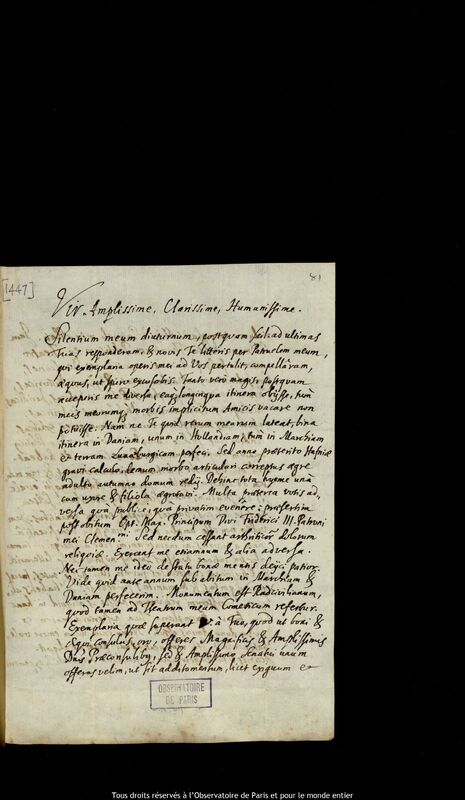 [1447]
81
Vir Amplissime, Clarissime, Humanissime.
Silentium meum diuturnum, postquam scil. ad ultimas
Tuas responderam, & novis Te litteris per Patruelem meum,
qui exemplaria operis mei ad Vos pertulit, compellaram,
æquus, ut spero excusabis. Tanto vero magis, postquam
receperis me diversa, eaq; longinqua itinera obijsse, tum
meis meorumq; morbis implicitum Amicis vacare non
potuisse. Nam ne Te quid rerum mearum lateat, bina
itinera in Daniam, unum in Hollandiam, tum in Marchiam
& terram perfeci. Sed anno præterito Hafniæ
gravi calculo, demum morbo articulari correptus ægre
adulto autumno domum redij. Dehinc tota hyeme unà
cum uxore & filiola ægrotavi. Multa præterea votis ad,
versa quà publice, quà privatim evenêre: præsertim
post obitum Opt. Max. Principum Divi Friderici III. Patroni
mei Clementmi. Sed necdum cessant arthritior dolorum
reliquiæ. Exercent me etiamnum & alia adversa.
Nec tamen me ideo de statu bonæ mentis dejici patior.
Vide quid ante annum sub abitum in Marchiam &
Daniam perfecerim. Monumentum est Radzivilianum,
quod tamen ad Theatrum meum Cometicum refertur.
Exemplaria quæ superant à Tuo, quod ut boni &
æqui consulas, oro, offeres Magnificis & Amplissimis
Dnis Præconsulibus, sed & Amplissimo Senatui unum
offeras velim, ut sit additamentum, licet exiguum &
OBSERVATOIRE
DE PARIS
Tous droits réservés à l'Observatoire de Paris et pour le monde entier